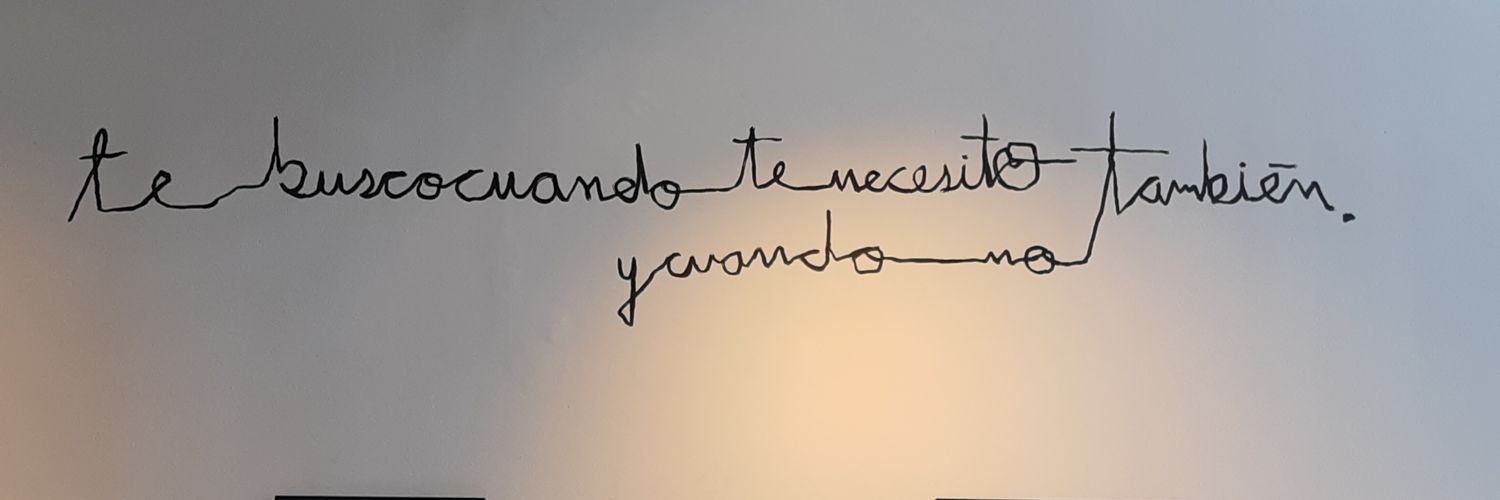 te busco cuando te necesito también.
y cuando no